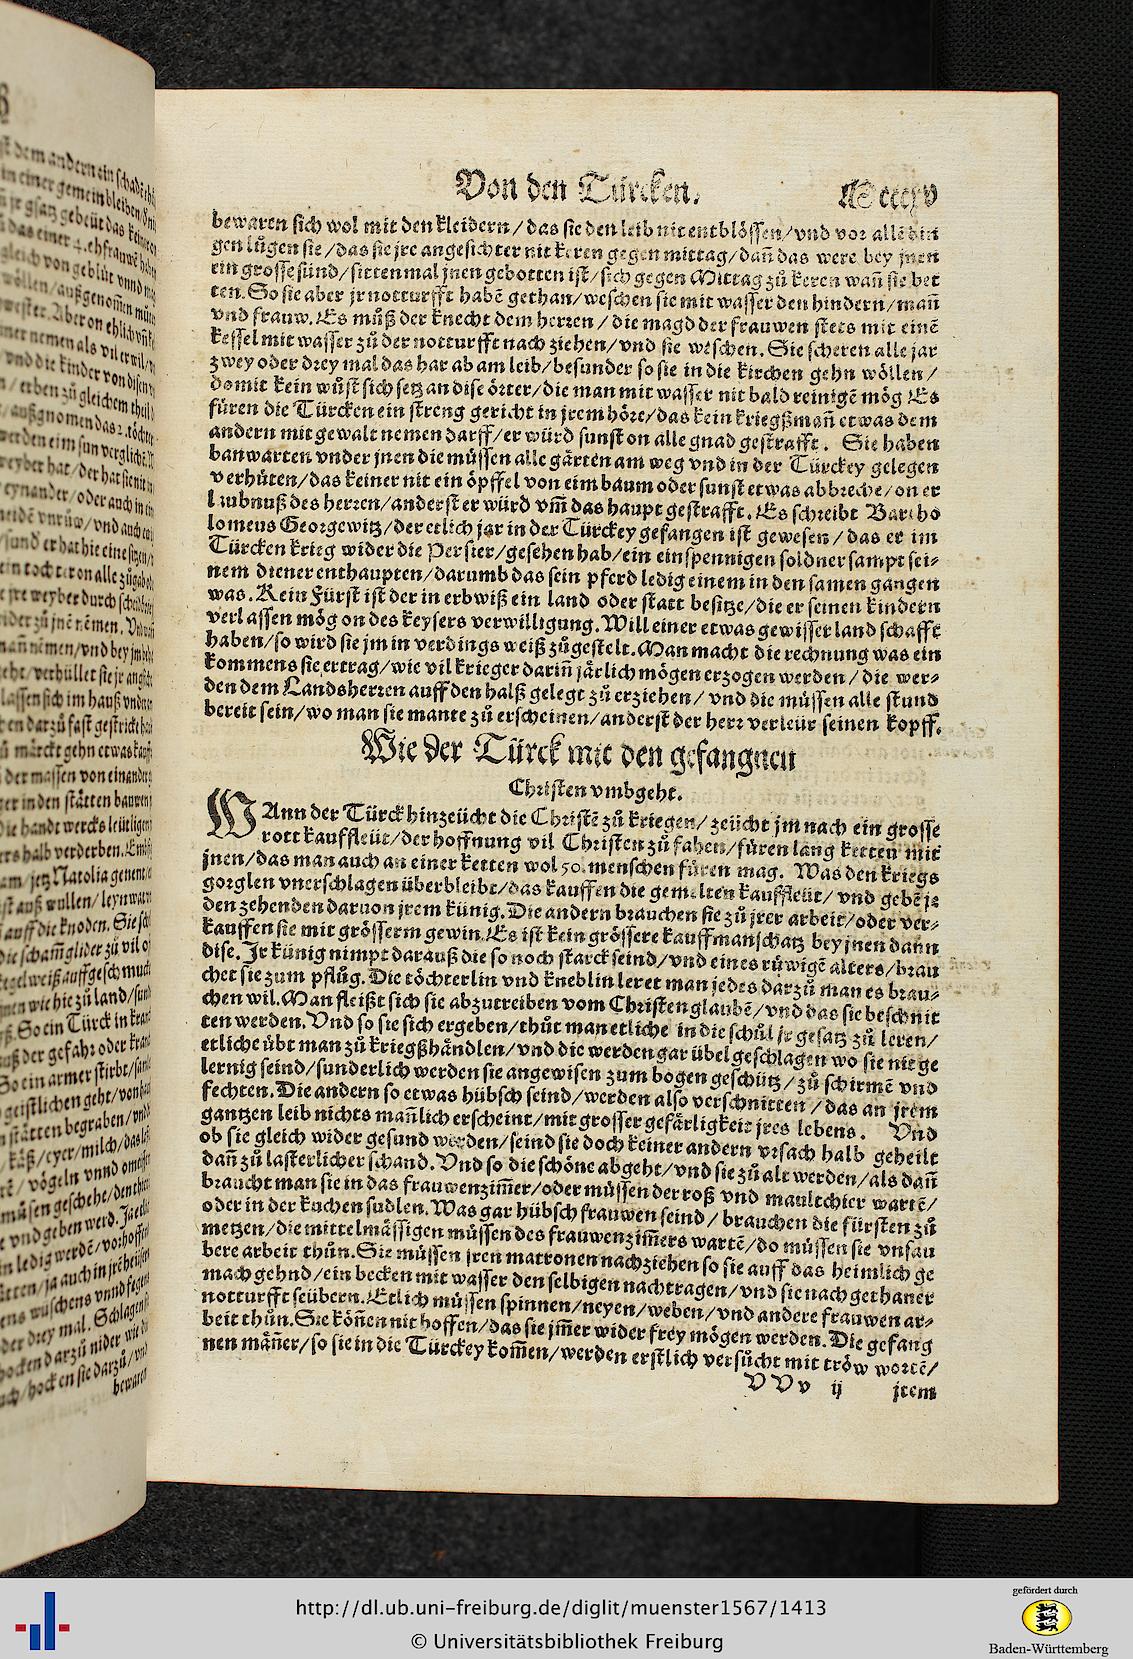 Von den Türcken. Mccccxv
bewaren sich wol mit den kleidern / das sie den leib nit entblössen / vnd vor allē din
gen lůgen sie / das sie jre angesichter nit keren gegen mittag / dañ das were bey jnen
ein grosse sünd / sittenmal jnen gebotten ist / sich gegen Mittag zů keren wañ sie bet
ten. So sie aber jr notturfft habē gethan / weschen sie mit wasser den hindern / mañ
vnd frauw. Es můß der knecht dem herren / die magd der frauwen stets mit einē
kessel mit wasser zů der notturfft nach ziehen / vnd sie weschen. Sie scheren alle jar
zwey oder drey mal das har ab am leib / besunder so sie in die kirchen gehn wöllen /
damit kein wůst sich setz an dise örter / die man mit wasser nit bald reinigē mög Es
füren die Türcken ein streng gericht in jrem hörе / das kein kriegßmañ etwas dem
andern mit gewalt nemen darff / er würd sunst on alle gnad gestrafft. Sie haben
banwarten vnder jnen die müssen alle gärten am weg vnd in der Türckey gelegen
verhüten / das keiner nit ein öpffel von eim baum oder sunst etwas abbreche / on er
laubnuß des herren / anderst er würd vm̃ das haupt gestrafft. Es schreibt Bartho
lomeus Georgewitz / der etlich jar in der Türckey gefangen ist gewesen / das er im
Türcken krieg wider die Persier / gesehen hab / ein einspennigen soldner sampt sei=
nem diener enthaupten / darumb das sein pferd ledig einem in den samen gangen
was. Kein Fürst ist der in erbwiß ein land oder statt besitze / die er seinen kindern
verlassen mög on des keysers verwilligung. Will einer etwas gewisser landschafft
haben / so wird sie jm in verdings weiß zůgestelt. Man macht die rechnung was ein
kommens sie ertrag / wie vil krieger dariñ järlich mögen erzogen werden / die wer=
den dem Landsherren auff den halß gelegt zů erziehen / vnd die müssen alle stund
bereit sein / wo man sie mante zů erscheinen / anderst der herr verleür seinen kopff.
Wie der Türck mit den gefangnen
Christen vmbgeht.
WAnn der Türck hinzeücht die Christē zů kriegen / zeücht jm nach ein grosse
rott kauffleüt / der hoffnung vil Christen zů fahen / füren lang ketten mit
jnen / das man auch an einer ketten wol 50. menschen füren mag. Was den kriegs
gorglen vnerschlagen überbleibt / das kauffen die gemelten kauffleüt / vnd gebē je
den zehenden daruon jrem künig. Die andern brauchen sie zů jrer arbeit / oder ver=
kauffen sie mit grösserm gewin. Es ist kein grössere kauffmanschatz bey jnen dann
dise. Jr künig nimpt darauß die so noch starck seind / vnd eines rüwigē alters / brau
chet sie zum pflůg. Die töchterlin vnd kneblin leret man jedes darzů man es brau=
chen wil. Man fleißt sich sie abzutreiben vom Christen glaubē / vnd das sie beschnit
ten werden. Vnd so sie sich ergeben / thůt man etliche in die schůl jr gesatz zů leren /
etliche übt man zů kriegßhändlen / vnd die werden gar übel geschlagen wo sie nit ge
lernig seind / sunderlich werden sie angewisen zum bogen geschütz / zů schirmē vnd
fechten. Die andern so etwas hübsch seind / werden also verschnitten / das an jrem
gantzen leib nichts mañlich erscheint / mit grosser gefärligkeit jres lebens. Vnd
ob sie gleich wider gesund werden / seind sie doch keiner andern vrsach halb geheilt
dañ zů lasterlicher schand. Vnd so die schöne abgeht / vnd sie zů alt werden / als dañ
braucht man sie in das frauwenzim̃er / oder müssen der roß vnd maulthier wartē /
oder in der kuchen sudlen. Was gar hübsch frauwen seind / brauchen die fürsten zů
metzen / die mittelmässigen müssen des frauwenzim̃ers wartē / do müssen sie vnsau
bere arbeit thůn. Sie müssen jren matronen nachziehen so sie auff das heimlich ge
mach gehnd / ein becken mit wasser den selbigen nachtragen / vnd sie nach gethaner
notturfft seübern. Etlich müssen spinnen / neyen / weben / vnd andere frauwen ar=
beit thůn. Sie köñen nit hoffen / das sie jm̃er wider frey mögen werden. Die gefang
nen mäñer / so sie in die Türckey kom̃en / werden erstlich versůcht mit tröw wortē /
VVv ij jtem
http://dl.ub.uni-freiburg.de/diglit/muenster1567/1413
© Universitätsbibliothek Freiburg
gefördert durch
Baden-Württemberg